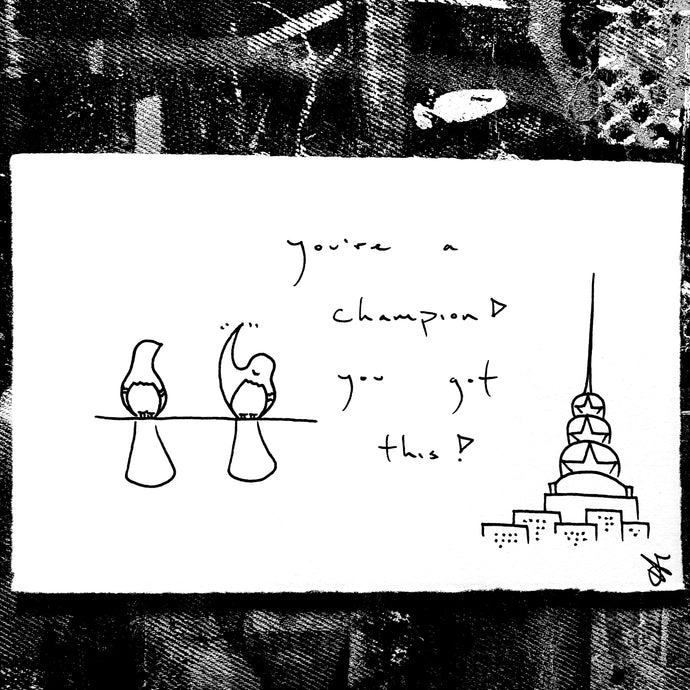 you're a
champion!
you got
this!